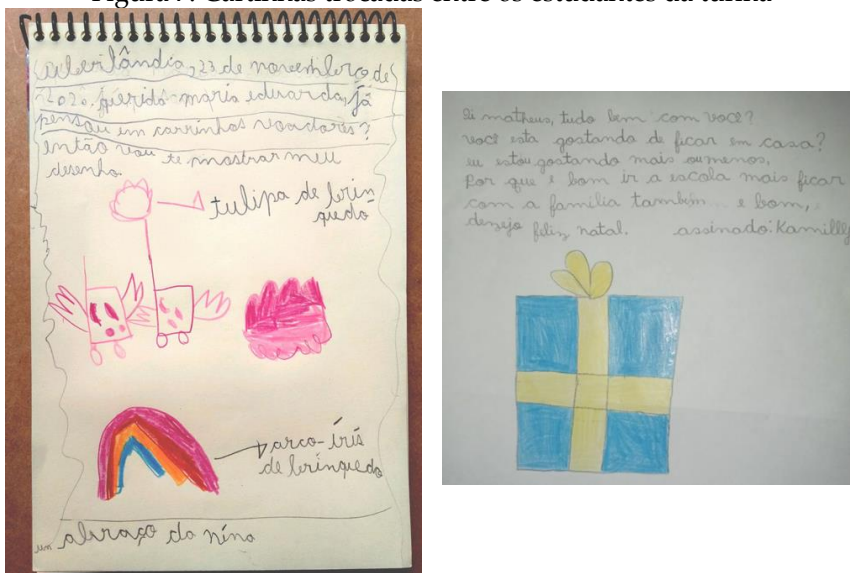 Uberlândia, 23 de novembro de
2020. querida maria eduarda, já
pensou em carrinhos voadores?
então vou te mostrar meu
desenho.
tulipa de brin
quedo
arco-íris
de brinquedo
um abraço da nina
Oi matheus, tudo bem com você?
você esta gostando de ficar em casa?
eu estou gostando mais oumenos,
Por que e bom ir a escola mais ficar
com a familia também e bom,
dezejo feliz natal. assinado: Kamilly